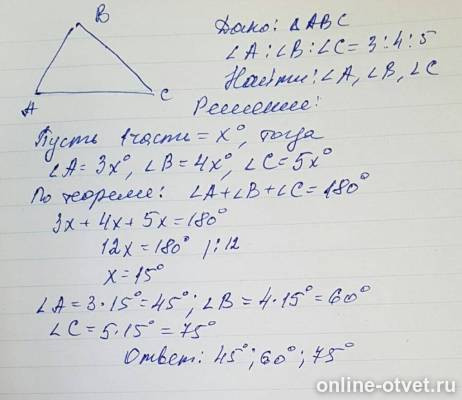 B
A
C
Дано: △ABC
∠A:∠B:∠C=3:4:5
Найти: ∠A, ∠B, ∠C
Решение:
Пусть 1 часть = x°, тогда
∠A=3x°, ∠B=4x°, ∠C=5x°
По теореме: ∠A+∠B+∠C=180°
3x+4x+5x=180°
12x=180° |:12
x=15°
∠A=3·15°=45°; ∠B=4·15°=60°
∠C=5·15°=75°
Ответ: 45°; 60°; 75°
online-otvet.ru